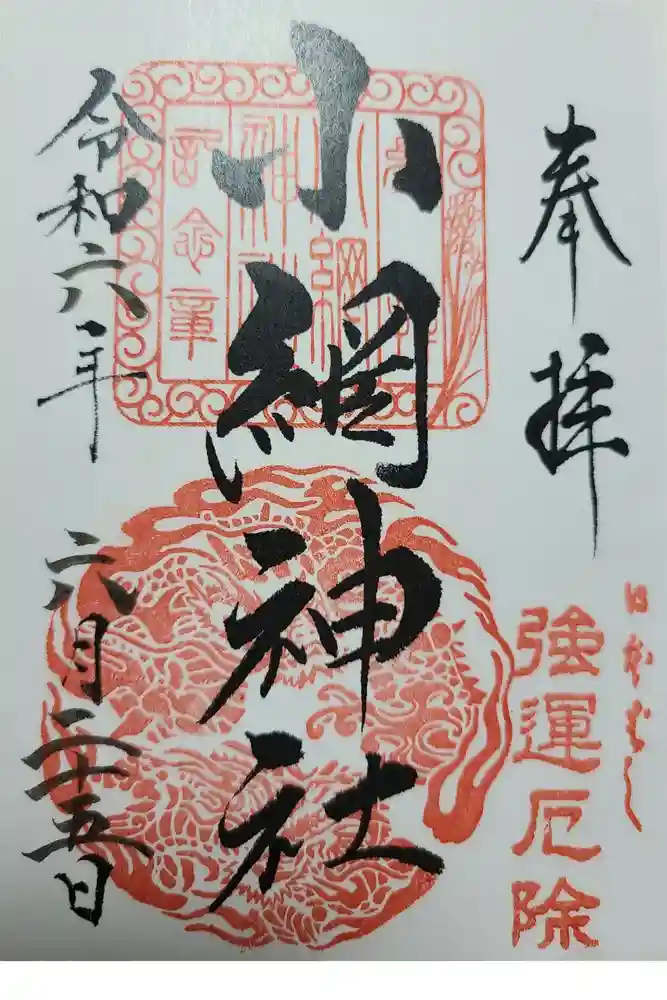 奉拝
日本ばし
強運厄除
小網神社
令和六年
六月二十五日